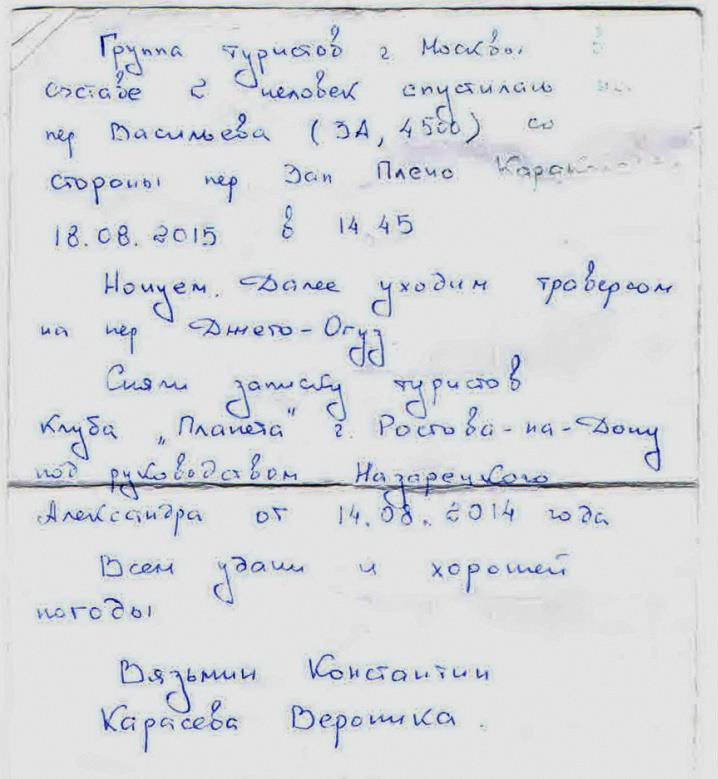 Группа туристов г. Москвы в
составе 2 человек спустилась на
пер Васильева (3А, 4500) со
стороны пер Зап Плечо
18.08.2015 в 14.45
Ночуем. Далее уходим траверсом
на пер Джето-Огуз
Сняли записку туристов
клуба „Планета" г. Ростова-на-Дону
под руководством Назарецкого
Александра от 14.08.2014 года
Всем удачи и хорошей
погоды
Вязьмин Константин
Карасева Вероника.